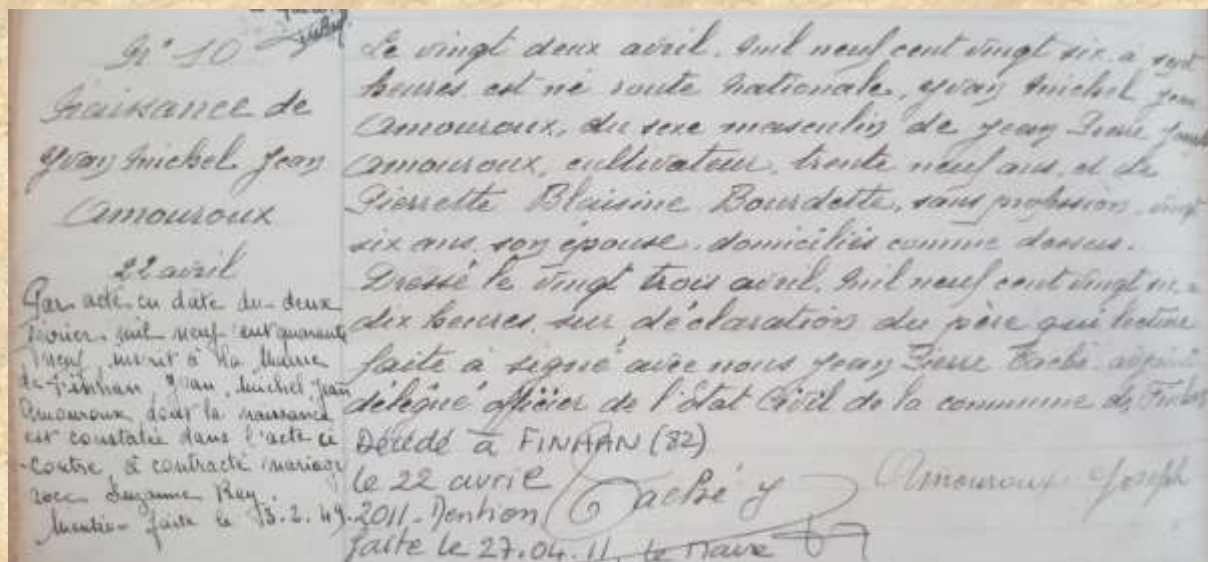 N° 10
Naissance de
Yvan Michel Jean
Amouroux
22 avril
Par acte en date du deux
février mil neuf cent quarante
neuf, inscrit à la Mairie
de Finhan, Yvan, Michel, Jean
Amouroux dont la naissance
est constatée dans l'acte ci
-contre, a contracté mariage
avec Suzanne Rey.
Mention faite le 13.2.49.
Le vingt deux avril, mil neuf cent vingt six, à sept
heures est né route nationale, Yvan Michel Jean
Amouroux, du sexe masculin de Jean Pierre Joseph
Amouroux, cultivateur, trente neuf ans, et de
Pierrette Blaisine Bourdette, sans profession, vingt
six ans, son épouse, domiciliés comme dessus.
Dressé le vingt trois avril, mil neuf cent vingt six, à
dix heures, sur déclaration du père qui lecture
faite a signé avec nous Jean Pierre Taché, adjoint
délégué officier de l'Etat Civil de la commune de Finhan
Décédé à FINHAN (82)
le 22 avril
2011. Mention
faite le 27.04.11. Le Maire
Taché J
Amouroux Joseph